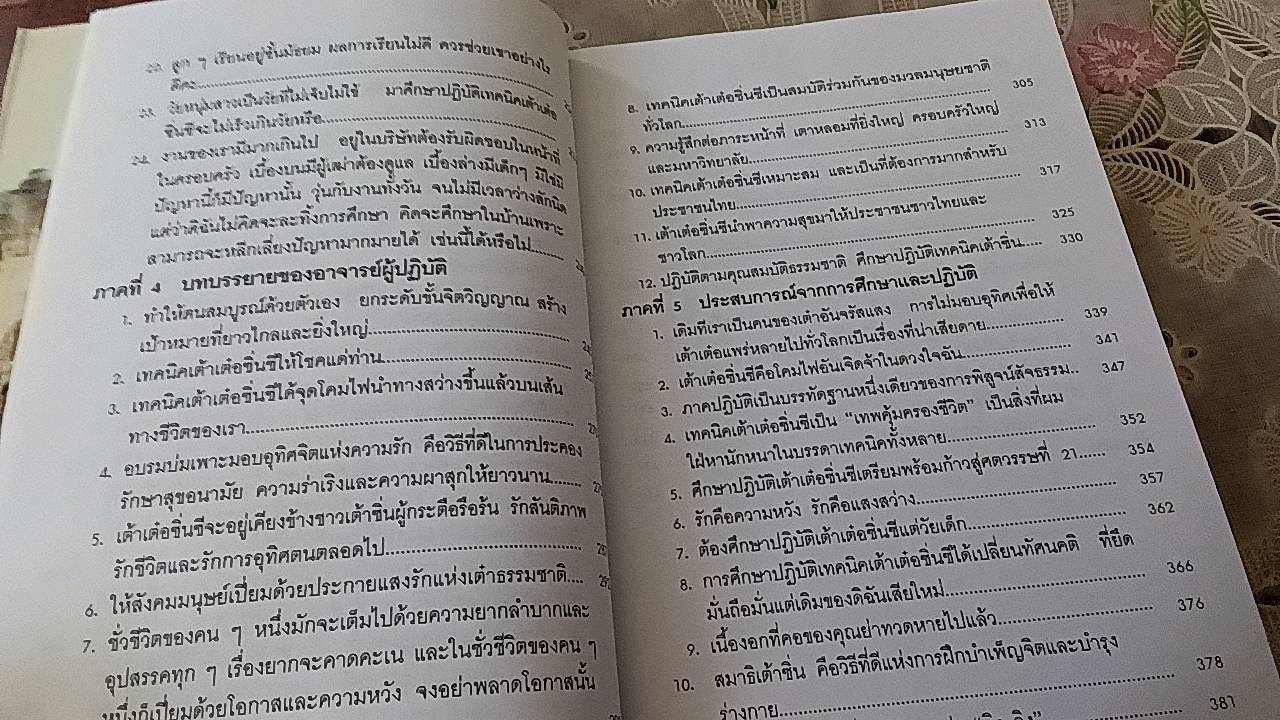 ๒๒. ลูก ๆ เรียนอยู่ชั้นมัธยม ผลการเรียนไม่ดี ควรช่วยเขาอย่างไร
ดีคะ
๒๓. วัยหนุ่มสาวเป็นวัยที่ไม่เจ็บไม่ไข้ มาศึกษาปฏิบัติเทคนิคเต้าเต๋อ
ซิ่นซีจะไม่เร็วเกินวัยหรือ
๒๔. งานของเรามีมากเกินไป อยู่ในบริษัทต้องรับผิดชอบในหน้าที่
ในครอบครัว เบื้องบนมีผู้เฒ่าต้องดูแล เบื้องล่างมีเด็กๆ มิใช่มี
ปัญหานี้ก็มีปัญหานั้น วุ่นกับงานทั้งวัน จนไม่มีเวลาว่างสักนิด
แต่ว่าดิฉันไม่คิดจะละทิ้งการศึกษา คิดจะศึกษาในบ้านเพราะ
สามารถจะหลีกเลี่ยงปัญหามากมายได้ เช่นนี้ได้หรือไม่
ภาคที่ 4 บทบรรยายของอาจารย์ผู้ปฏิบัติ
1. ทำให้ตนสมบูรณ์ด้วยตัวเอง ยกระดับขั้นจิตวิญญาณ สร้าง
เป้าหมายที่ยาวไกลและยิ่งใหญ่
2. เทคนิคเต้าเต๋อซิ่นซีให้โชคแด่ท่าน
3. เทคนิคเต้าเต๋อซิ่นซีได้จุดโคมไฟนำทางสว่างขึ้นแล้วบนเส้น
ทางชีวิตของเรา
4. อบรมบ่มเพาะมอบอุทิศจิตแห่งความรัก คือวิธีที่ดีในการประคอง
รักษาสุขอนามัย ความร่าเริงและความผาสุกให้ยาวนาน
5. เต้าเต๋อซิ่นซีจะอยู่เคียงข้างชาวเต้าซิ่นผู้กระตือรือร้น รักสันติภาพ
รักชีวิตและรักการอุทิศตนตลอดไป
6. ให้สังคมมนุษย์เปี่ยมด้วยประกายแสงรักแห่งเต๋าธรรมชาติ....
7. ชั่วชีวิตของคน ๆ หนึ่งมักจะเต็มไปด้วยความยากลำบากและ
อุปสรรคทุก ๆ เรื่องยากจะคาดคะเน และในชั่วชีวิตของคน ๆ
หนึ่งก็เปี่ยมด้วยโอกาสและความหวัง จงอย่าพลาดโอกาสนั้น
8. เทคนิคเต้าเต๋อซิ่นซีเป็นสมบัติร่วมกันของมวลมนุษยชาติ
ทั่วโลก 305
9. ความรู้สึกต่อภาระหน้าที่ เตาหลอมที่ยิ่งใหญ่ ครอบครัวใหญ่
และมหาวิทยาลัย 313
10. เทคนิคเต้าเต๋อซิ่นซีเหมาะสม และเป็นที่ต้องการมากสำหรับ
ประชาชนไทย 317
11. เต้าเต๋อซิ่นซีนำพาความสุขมาให้ประชาชนชาวไทยและ
ชาวโลก 325
12. ปฏิบัติตามคุณสมบัติธรรมชาติ ศึกษาปฏิบัติเทคนิคเต้าซิ่น..... 330
ภาคที่ 5 ประสบการณ์จากการศึกษาและปฏิบัติ
1. เดิมที่เราเป็นคนของเต๋าอันจรัสแสง การไม่มอบอุทิศเพื่อให้
เต้าเต๋อแพร่หลายไปทั่วโลกเป็นเรื่องที่น่าเสียดาย 339
2. เต้าเต๋อซิ่นซีคือโคมไฟอันเจิดจ้าในดวงใจฉัน 341
3. ภาคปฏิบัติเป็นบรรทัดฐานหนึ่งเดียวของการพิสูจน์สัจธรรม.. 347
4. เทคนิคเต้าเต๋อซิ่นซีเป็น “เทพคุ้มครองชีวิต” เป็นสิ่งที่ผม
ใฝ่หานักหนาในบรรดาเทคนิคทั้งหลาย 352
5. ศึกษาปฏิบัติเต้าเต๋อซิ่นซีเตรียมพร้อมก้าวสู่ศตวรรษที่ 21...... 354
6. รักคือความหวัง รักคือแสงสว่าง 357
7. ต้องศึกษาปฏิบัติเต้าเต๋อซิ่นซีแต่วัยเด็ก 362
8. การศึกษาปฏิบัติเทคนิคเต้าเต๋อซิ่นซีได้เปลี่ยนทัศนคติ ที่ยึด
มั่นถือมั่นแต่เดิมของดิฉันเสียใหม่ 366
9. เนื้องอกที่คอของคุณย่าทวดหายไปแล้ว 376
10. สมาธิเต้าซิ่น คือวิธีที่ดีแห่งการฝึกบำเพ็ญจิตและบำรุง
ร่างกาย 378
381